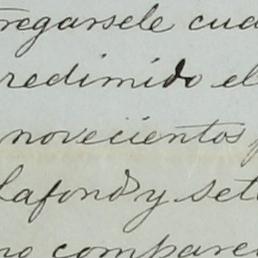 tregarsele cua
redimido el
novecientos
lafond y set
no compare